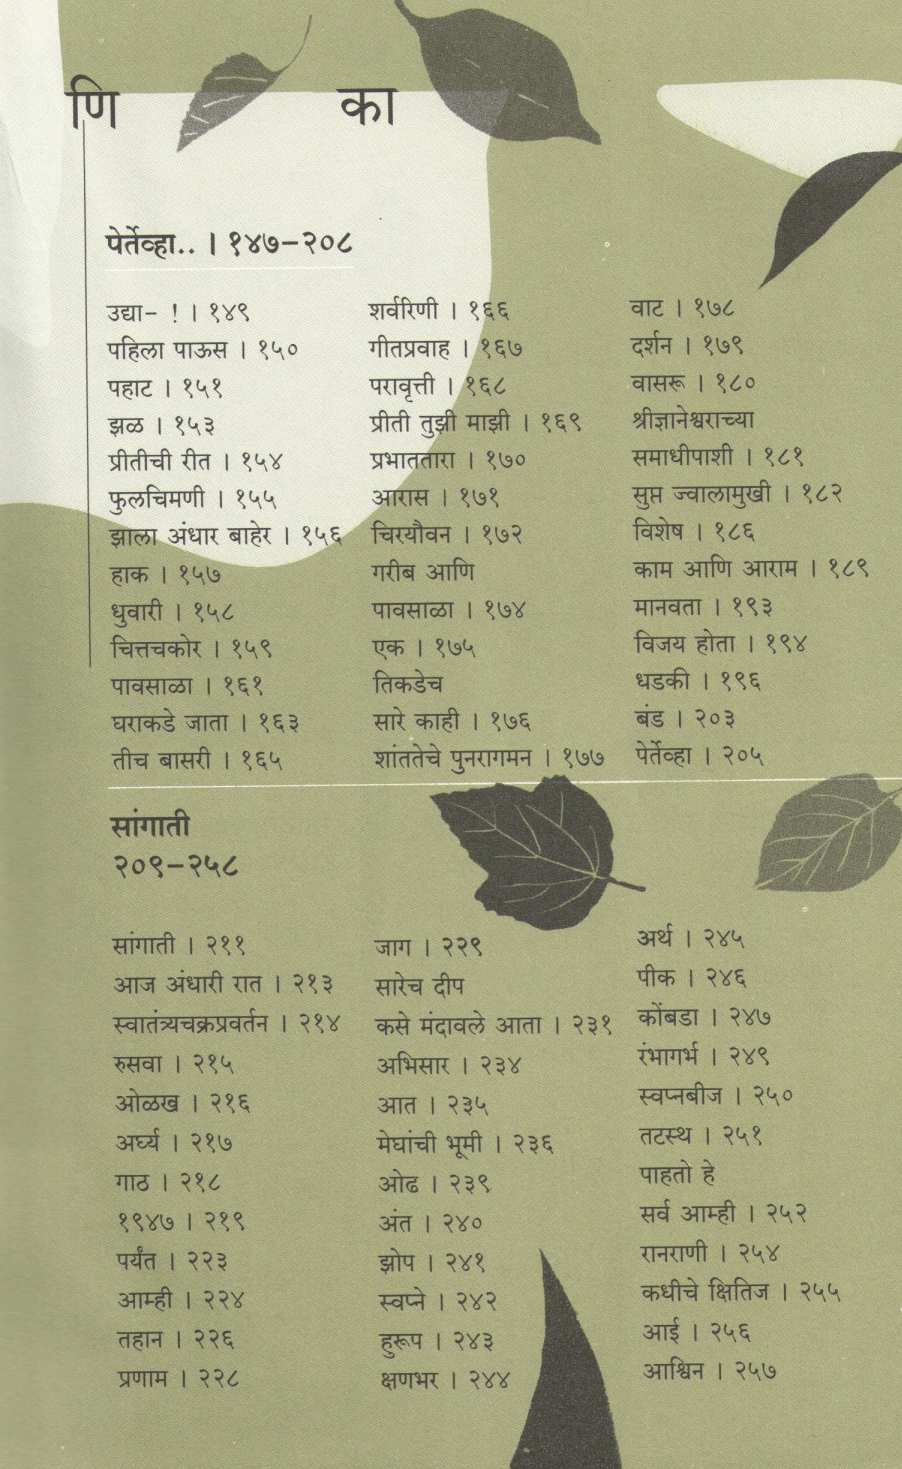 णि का
पेर्तेव्हा.. । १४७–२०८
उद्या– ! । १४९
पहिला पाऊस । १५०
पहाट । १५१
झळ । १५३
प्रीतीची रीत । १५४
फुलचिमणी । १५५
झाला अंधार बाहेर । १५६
हाक । १५७
धुवारी । १५८
चित्तचकोर । १५९
पावसाळा । १६१
घराकडे जाता । १६३
तीच बासरी । १६५
शर्वरिणी । १६६
गीतप्रवाह । १६७
परावृत्ती । १६८
प्रीती तुझी माझी । १६९
प्रभाततारा । १७०
आरास । १७१
चिरयौवन । १७२
गरीब आणि
पावसाळा । १७४
एक । १७५
तिकडेच
सारे काही । १७६
शांततेचे पुनरागमन । १७७
वाट । १७८
दर्शन । १७९
वासरू । १८०
श्रीज्ञानेश्वराच्या
समाधीपाशी । १८१
सुप्त ज्वालामुखी । १८२
विशेष । १८६
काम आणि आराम । १८९
मानवता । १९३
विजय होता । १९४
धडकी । १९६
बंड । २०३
पेर्तेव्हा । २०५
सांगाती
२०९–२५८
सांगाती । २११
आज अंधारी रात । २१३
स्वातंत्र्यचक्रप्रवर्तन । २१४
रुसवा । २१५
ओळख । २१६
अर्घ्य । २१७
गाठ । २१८
१९४७ । २१९
पर्यंत । २२३
आम्ही । २२४
तहान । २२६
प्रणाम । २२८
जाग । २२९
सारेच दीप
कसे मंदावले आता । २३१
अभिसार । २३४
आत । २३५
मेघांची भूमी । २३६
ओढ । २३९
अंत । २४०
झोप । २४१
स्वप्ने । २४२
हुरूप । २४३
क्षणभर । २४४
अर्थ । २४५
पीक । २४६
कोंबडा । २४७
रंभागर्भ । २४९
स्वप्नबीज । २५०
तटस्थ । २५१
पाहतो हे
सर्व आम्ही । २५२
रानराणी । २५४
कधीचे क्षितिज । २५५
आई । २५६
आश्विन । २५७